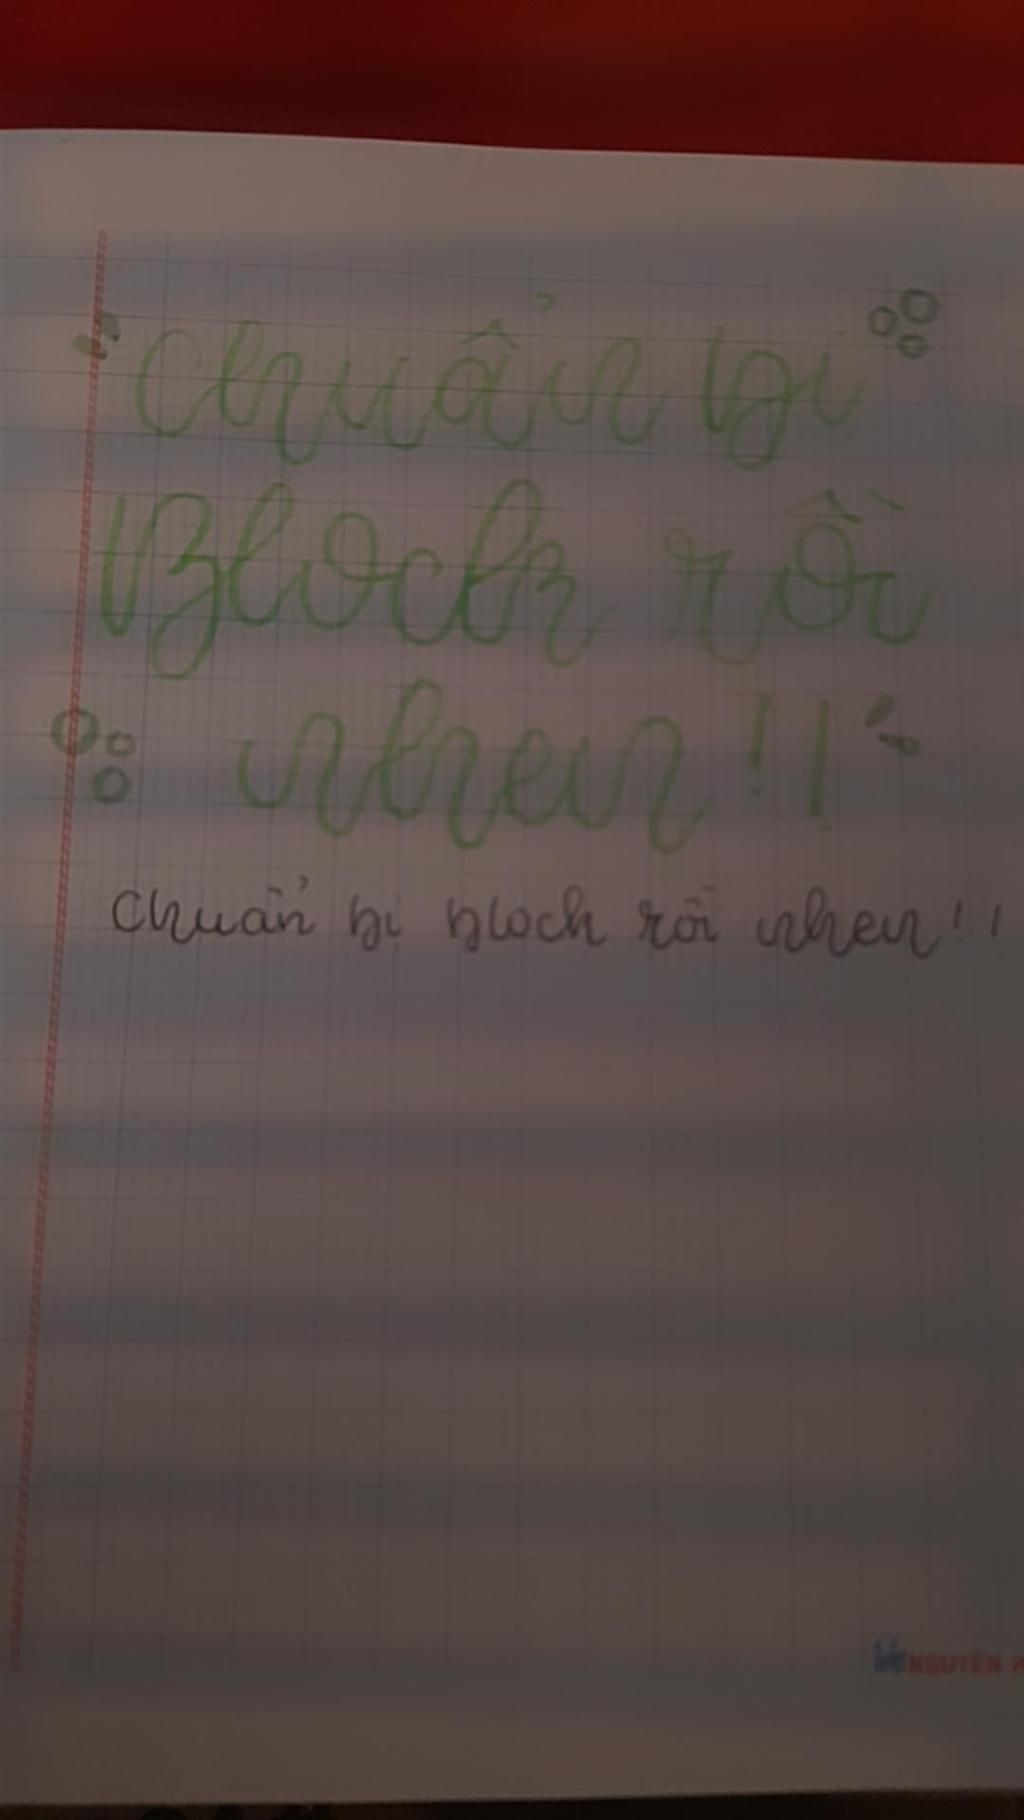 Chuẩn bị
Block rồi
nhen!!
Chuẩn bị block rồi nhen!!
NGUYEN